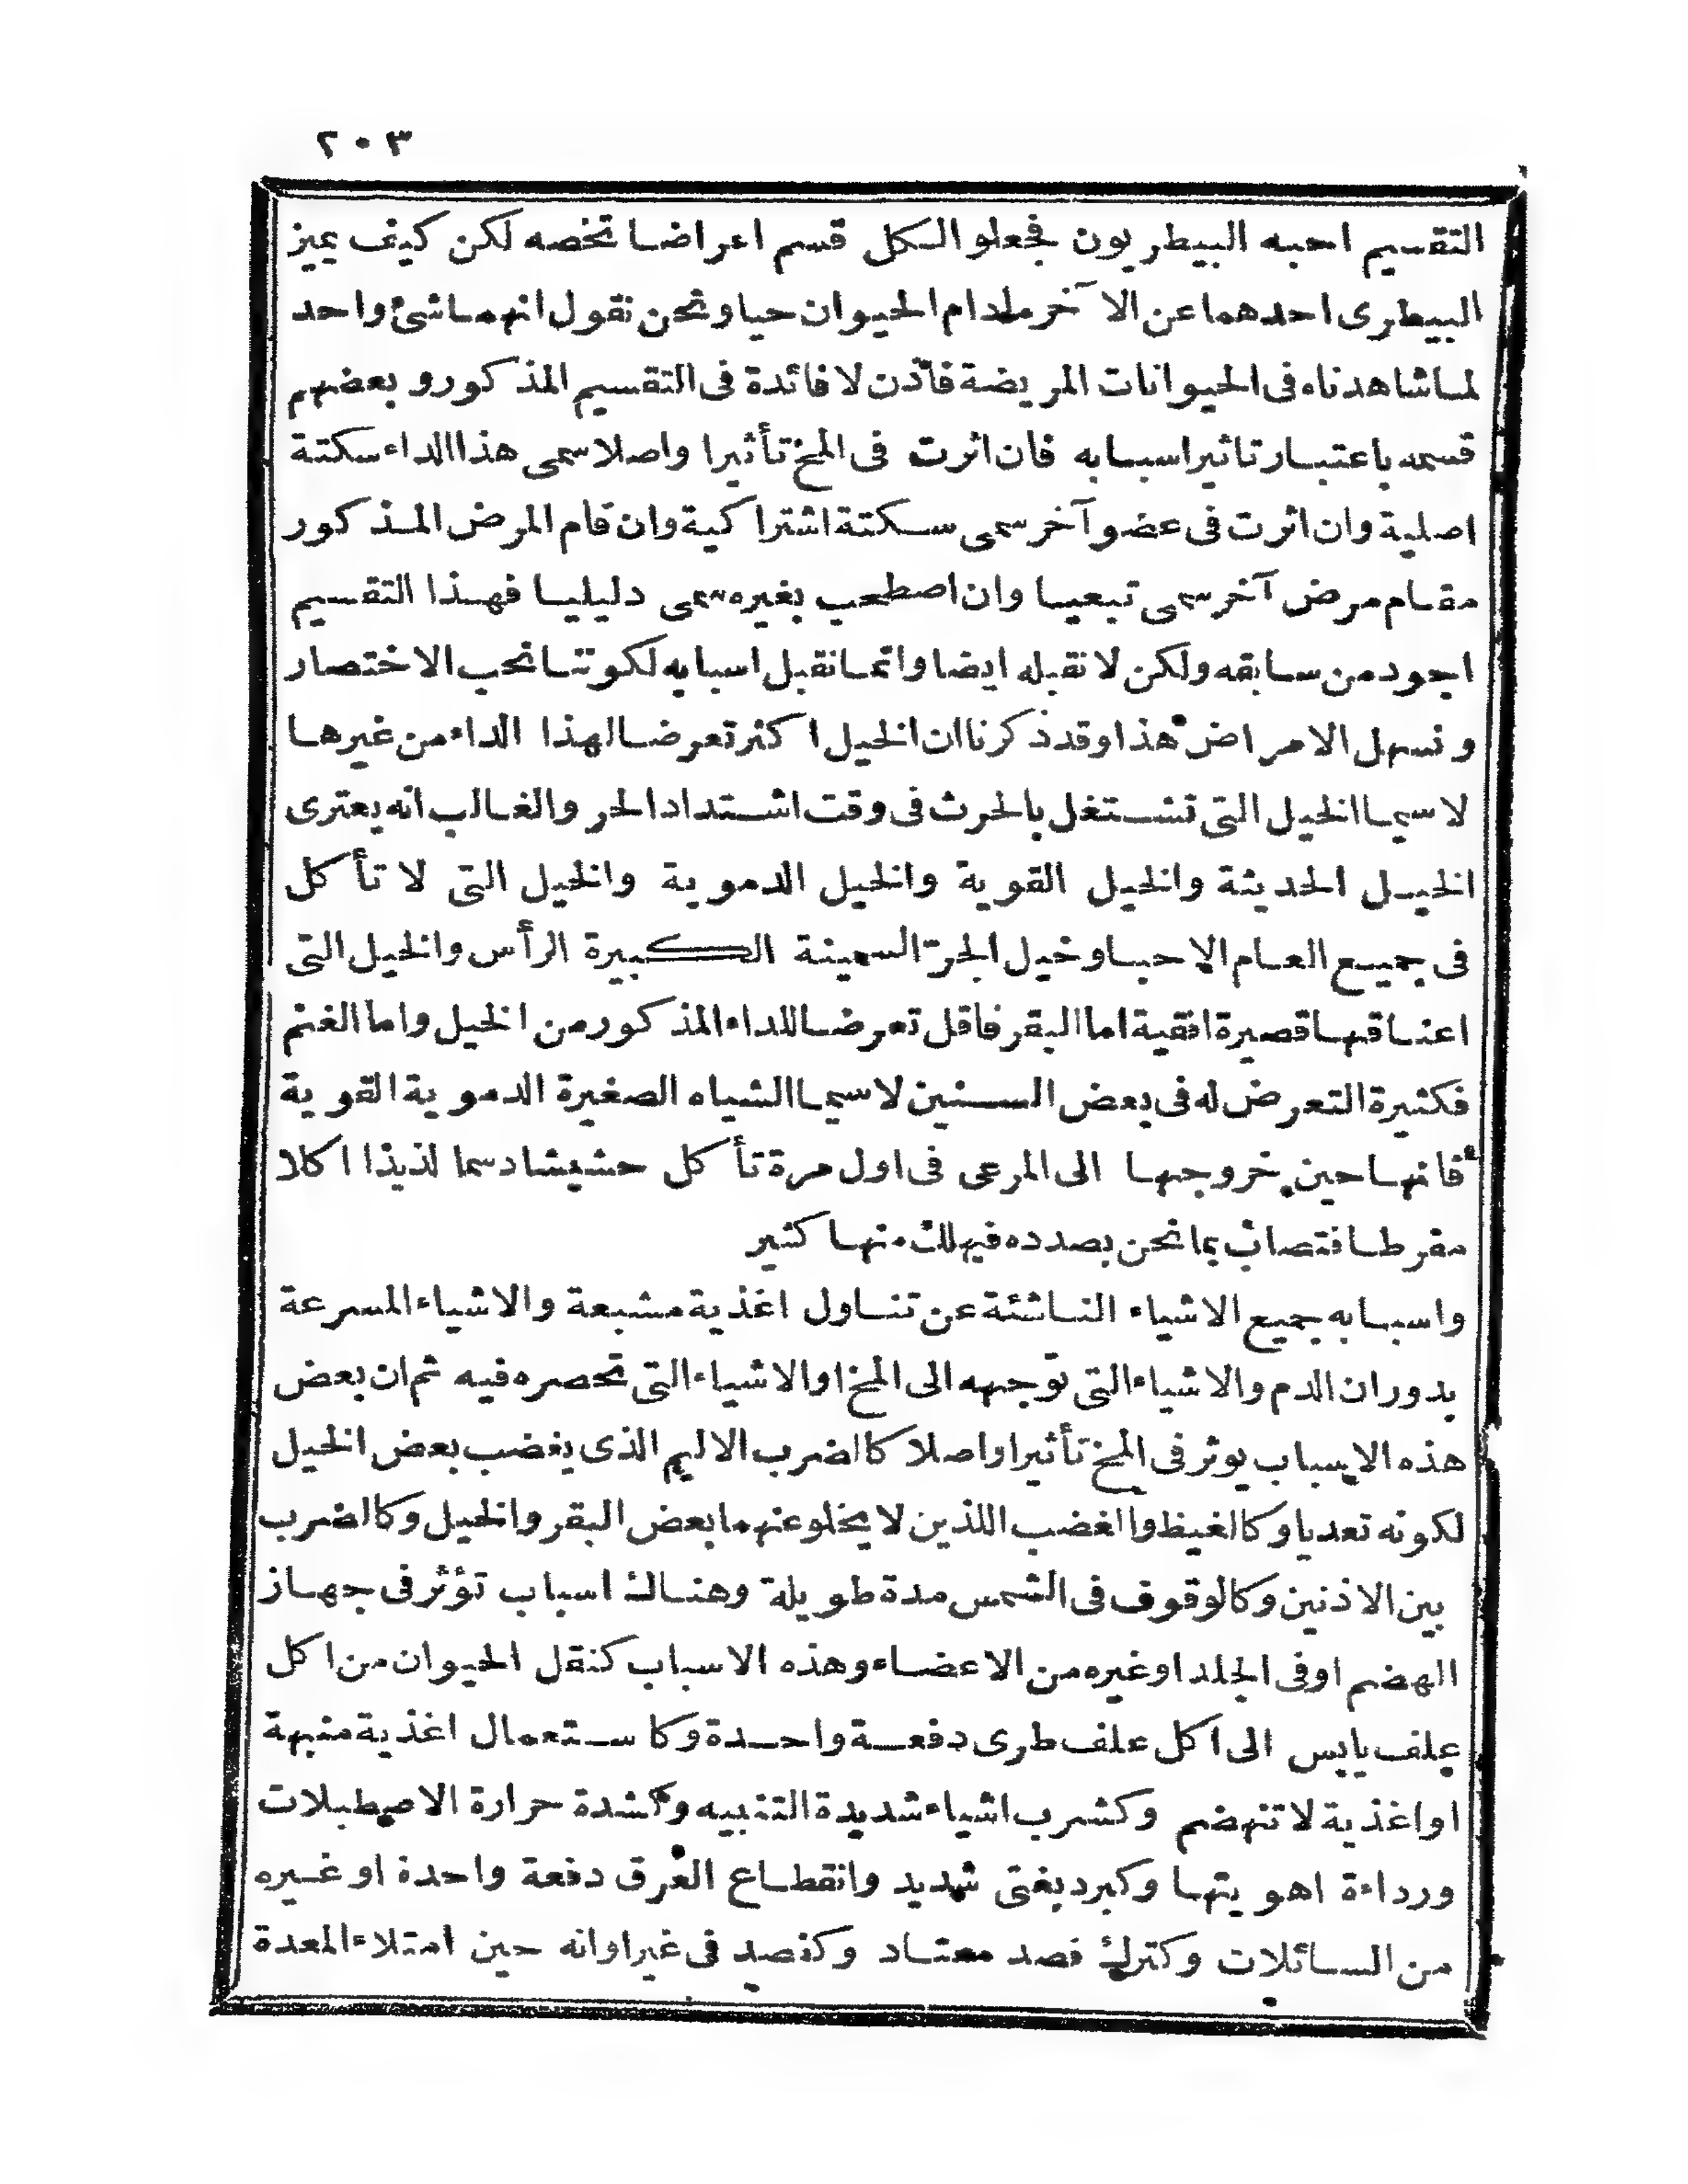 ٢٠٣
التقسيم احبه البيطريون فجعلوا لكل قسم اعراضا تخصه لكن كيف يميز
البيطرى احدهما عن الآخر مادام الحيوان حيا ونحن نقول انهما شئ واحد
لما شاهدناه فى الحيوانات المريضة فاذن لا فائدة فى التقسيم المذكور و بعضهم
قسمه باعتبار تاثير اسبابه فان اثرت فى المخ تأثيرا واصلا سمى هذا الداء سكتة
اصلية وان اثرت فى عضو آخر سمى سكتة اشتراكية وان قام المرض المذكور
مقام مرض آخر سمى تبعيا وان اصطحب بغيره سمى دليليا فهذا التقسيم
اجود من سابقه ولكن لا نقبله ايضا وانما نقبل اسبابه لكوننا نحب الاختصار
ونسهل الامراض هذا وقد ذكرنا ان الخيل اكثر تعرضا لهذا الداء من غيرها
لاسيما الخيل التى تشتغل بالحرث فى وقت اشتداد الحر والغالب انه يعترى
الخيل الحديثة والخيل القوية والخيل الدموية والخيل التى لا تأكل
فى جميع العام الا حبا وخيل الجر السمينة الكبيرة الرأس والخيل التى
اعناقها قصيرة افقية اما البقر فاقل تعرضا للداء المذكور من الخيل واما الغنم
فكثيرة التعرض له فى بعض السنين لاسيما الشياه الصغيرة الدموية القوية
فانها حين خروجها الى المرعى فى اول مرة تأكل حشيشا دسما لذيذا اكلا
مفرطا فتصاب بما نحن بصدده فيهلك منها كثير
واسبابه جميع الاشياء الناشئة عن تناول اغذية مشبعة والاشياء المسرعة
بدوران الدم والاشياء التى توجهه الى المخ او الاشياء التى تحصره فيه ثم ان بعض
هذه الاسباب يوثر فى المخ تأثيرا واصلا كالضرب الاليم الذى يغضب بعض الخيل
لكونه تعديا وكالغيظ والغضب اللذين لا يخلو عنهما بعض البقر والخيل وكالضرب
بين الاذنين وكالوقوف فى الشمس مدة طويلة وهناك اسباب تؤثر فى جهاز
الهضم اوفى الجلد اوغيره من الاعضاء وهذه الاسباب كنقل الحيوان من اكل
علف يابس الى اكل علف طرى دفعة واحدة وكاستعمال اغذية منبهة
او اغذية لا تنهضم وكشرب اشياء شديدة التنبيه وكشدة حرارة الاصطبلات
ورداءة اهويتها وكبرد بغتى شديد وانقطاع العرق دفعة واحدة او غيره
من السائلات وكترك فصد معتاد وكفصد فى غير اوانه حين امتلاء المعدة